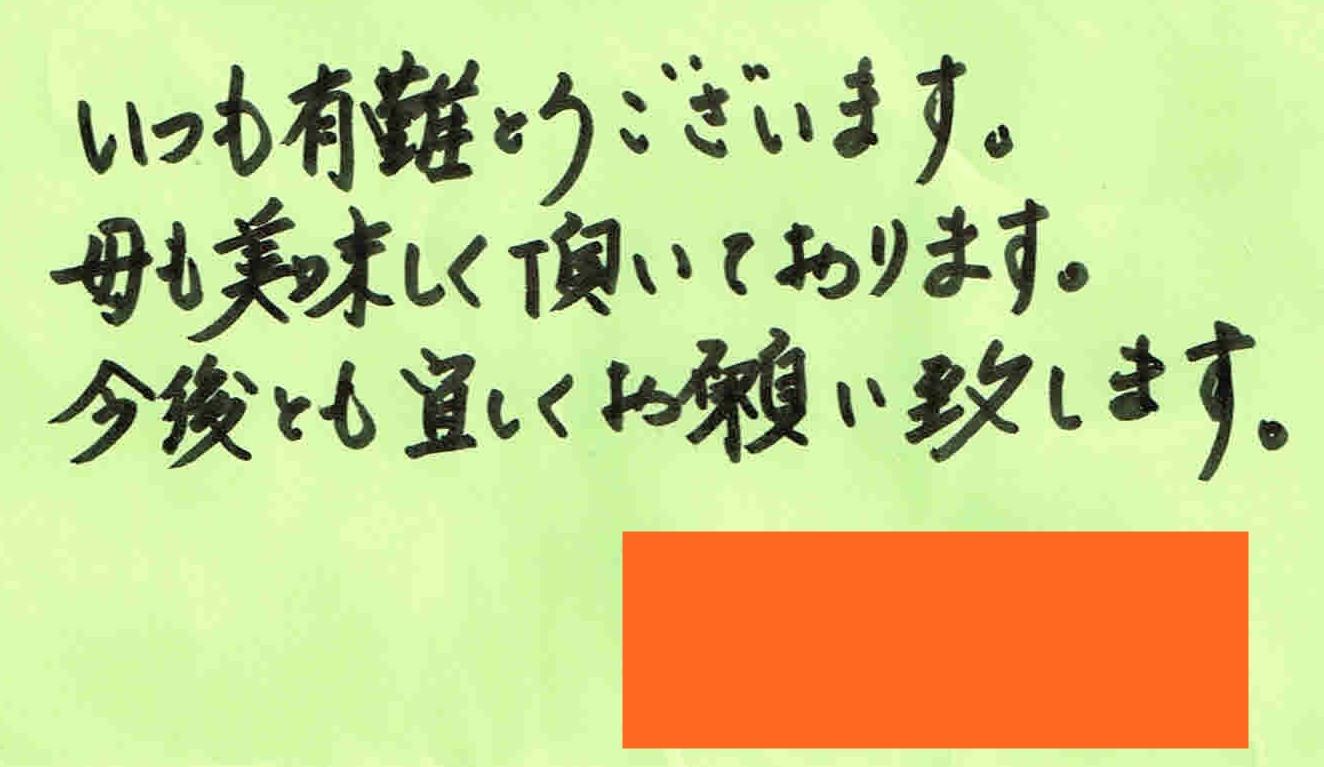 いつも有難とうございます。
母も美味しく頂いております。
今後とも宜しくお願い致します。